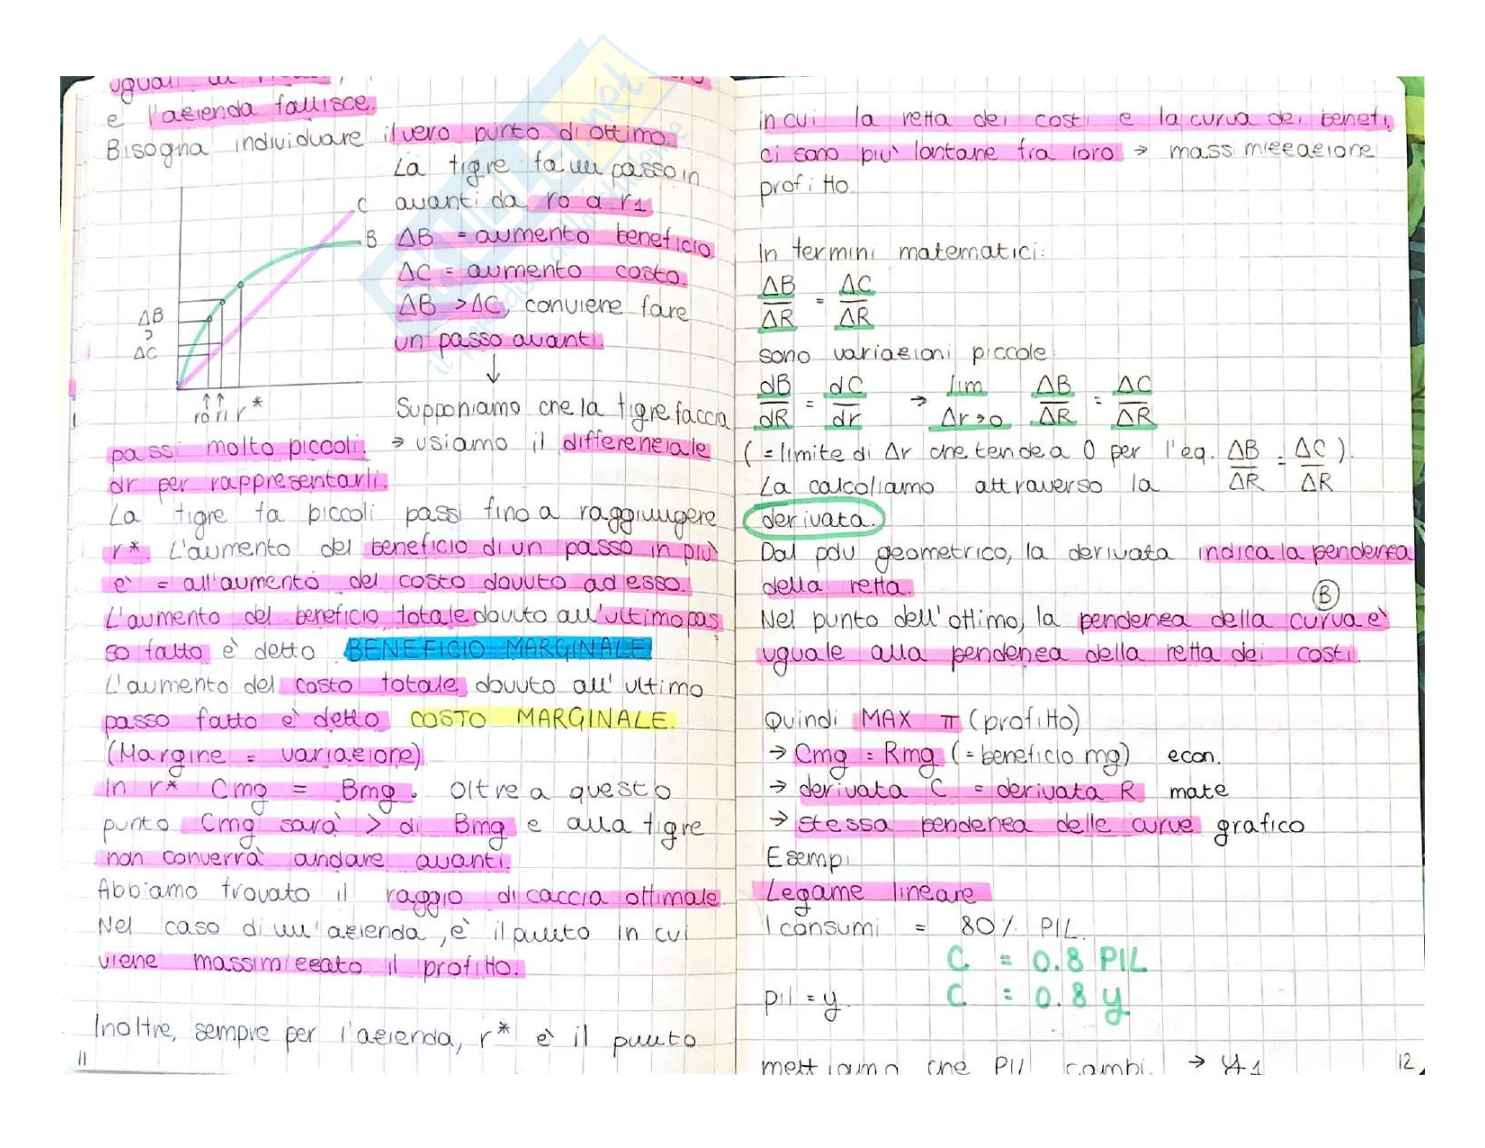 uguali
e l'azienda fallisce.
Bisogna individuare il vero punto di ottimo.
La tigre fa un passo in
avanti da r0 a r1
ΔB = aumento beneficio
ΔC = aumento costo.
ΔB > ΔC, conviene fare
un passo avanti.
↓
C
B
ΔB
>
ΔC
↑ ↑
r0 r1 r*
Supponiamo che la tigre faccia
passi molto piccoli. → usiamo il differenziale
dr per rappresentarli.
La tigre fa piccoli passi fino a raggiungere
r*. L'aumento del beneficio di un passo in più
è = all'aumento del costo dovuto ad esso.
L'aumento del beneficio totale dovuto all'ultimo pas
so fatto è detto BENEFICIO MARGINALE
L'aumento del costo totale dovuto all'ultimo
passo fatto è detto COSTO MARGINALE.
(Margine = variazione)
In r* Cmg = Bmg. Oltre a questo
punto Cmg sarà > di Bmg e alla tigre
non converrà andare avanti.
Abbiamo trovato il raggio di caccia ottimale
Nel caso di un'azienda, è il punto in cui
viene massimizzato il profitto.
Inoltre, sempre per l'azienda, r* è il punto
11
in cui la retta dei costi e la curva dei benefi.
ci sono più lontane fra loro → massimizzazione
profitto
In termini matematici:
ΔB/ΔR = ΔC/ΔR
sono variazioni piccole
dB/dR = dC/dr → lim Δr→0 ΔB/ΔR = ΔC/ΔR
( = limite di Δr che tende a 0 per l'eq. ΔB/ΔR = ΔC/ΔR ).
La calcoliamo attraverso la
derivata.
Dal pdv geometrico, la derivata indica la pendenza
della retta.
B
Nel punto dell'ottimo, la pendenza della curva è
uguale alla pendenza della retta dei costi.
Quindi MAX π (profitto)
→ Cmg = Rmg (= beneficio mg) econ.
→ derivata C = derivata R mate
→ stessa pendenza delle curve grafico
Esempi
Legame lineare
I consumi = 80% PIL.
C = 0.8 PIL
pil = y. C = 0.8 y
mettiamo che PIL cambi. → y1
12